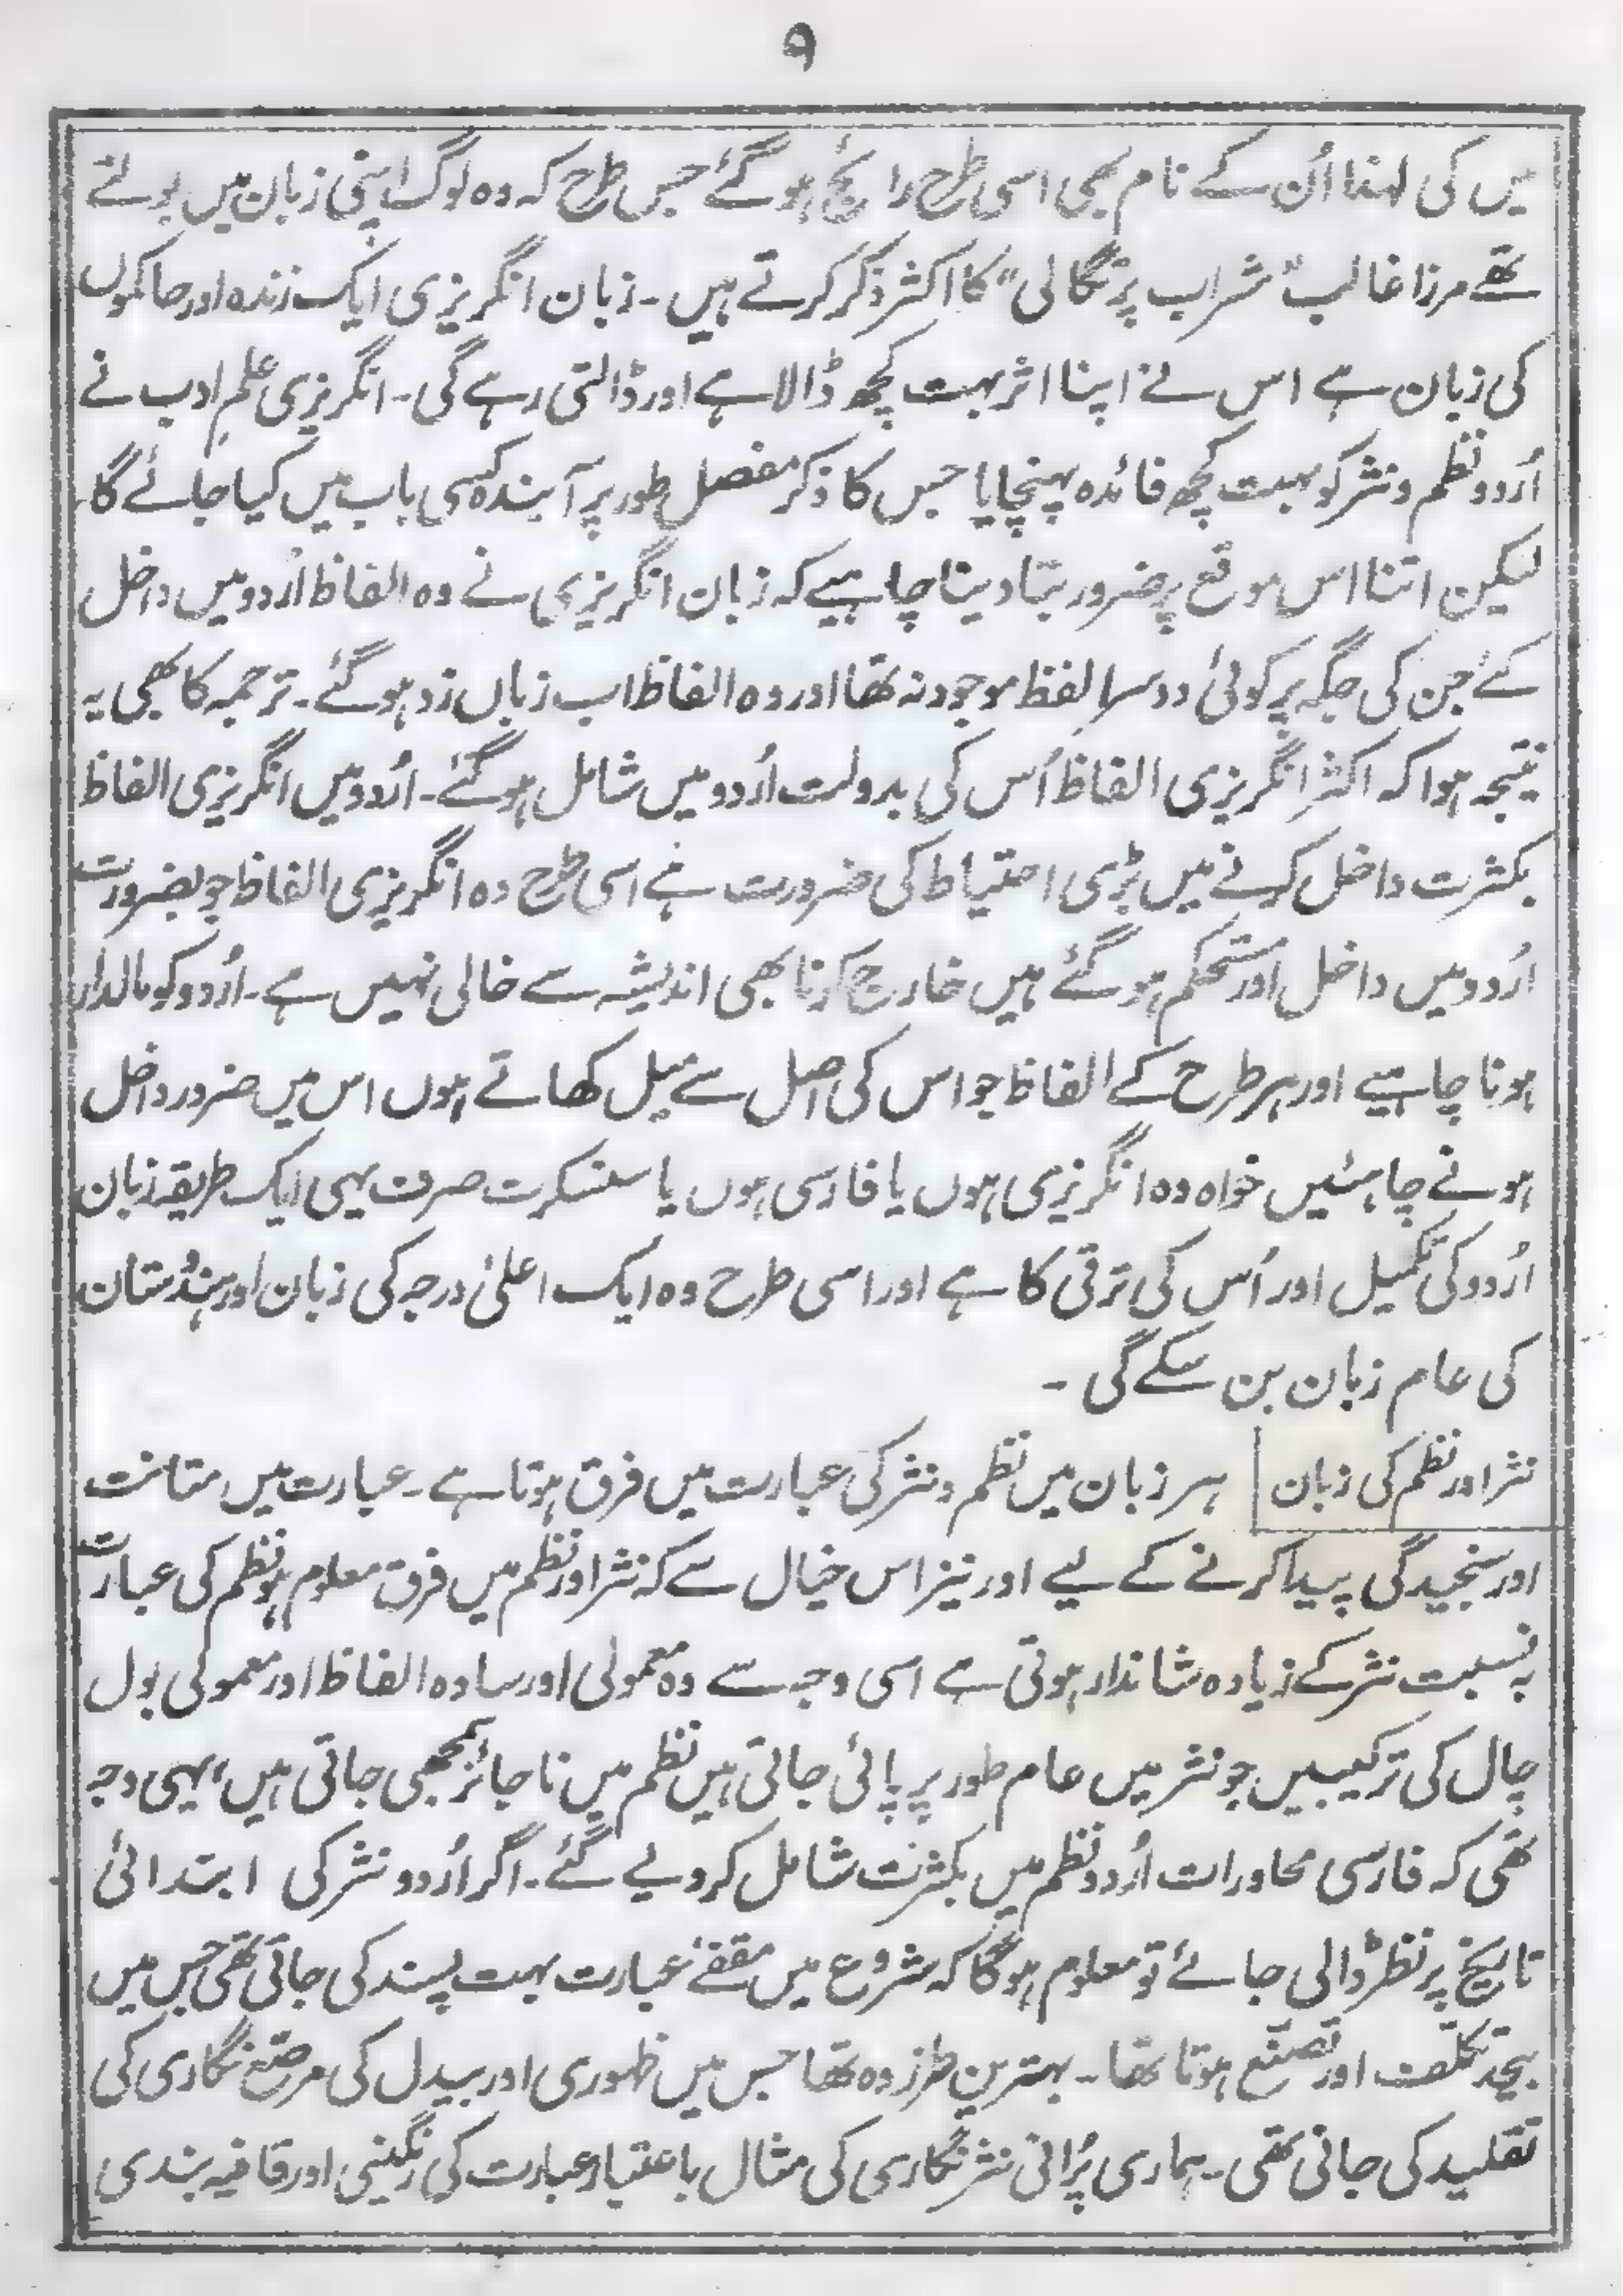 ۹
میں کی لہذا اُن کے نام بھی اسی طرح رائج ہوگئے جس طرح کہ وہ لوگ اپنی زبان میں بولتے
تھے مرزا غالب "شراب پرتگالی" کا اکثر ذکر کرتے ہیں ۔ زبان انگریزی ایک زندہ اور حاکموں
کی زبان ہے اس نے اپنا اثر بہت کچھ ڈالا ہے اور ڈالتی رہے گی ۔ انگریزی علم ادب نے
اُردو نظم و نثر کو بہت کچھ فائدہ پہنچایا جس کا ذکر مفصل طور پر آیندہ کسی باب میں کیا جائے گا
لیکن اتنا اس موقع پر ضرور بتا دینا چاہیے کہ زبان انگریزی نے وہ الفاظ اُردو میں داخل
کئے جن کی جگہ پر کوئی دوسرا لفظ موجود نہ تھا اور وہ الفاظ اب زباں زد ہوگئے ۔ ترجمہ کا بھی یہ
نتیجہ ہوا کہ اکثر انگریزی الفاظ اُس کی بدولت اُردو میں شامل ہوگئے ۔ اُردو میں انگریزی الفاظ
بکثرت داخل کرنے میں بڑی احتیاط کی ضرورت ہے اسی طرح وہ انگریزی الفاظ جو بضرورت
اُردو میں داخل اور مستحکم ہوگئے ہیں خارج کرنا بھی اندیشہ سے خالی نہیں ہے ۔ اُردو کو مالدار
ہونا چاہیے اور ہر طرح کے الفاظ جو اس کی اصل سے میل کھاتے ہوں اس میں ضرور داخل
ہونے چاہئیں خواہ وہ انگریزی ہوں یا فارسی ہوں یا سنسکرت صرف یہی ایک طریقہ زبان
اُردو کی تکمیل اور اُس کی ترقی کا ہے اور اسی طرح وہ ایک اعلیٰ درجہ کی زبان اور ہندُستان
کی عام زبان بن سکے گی ۔
نثر اور نظم کی زبان ہر زبان میں نظم و نثر کی عبارت میں فرق ہوتا ہے ۔ عبارت میں متانت
اور سنجیدگی پیدا کرنے کے لیے اور نیز اس خیال سے کہ نثر اور نظم میں فرق معلوم ہو نظم کی عبارت
بہ نسبت نثر کے زیادہ شاندار ہوتی ہے اسی وجہ سے وہ معمولی اور سادہ الفاظ اور معمولی بول
چال کی ترکیبیں جو نثر میں عام طور پر پائی جاتی ہیں نظم میں ناجائز سمجھی جاتی ہیں، یہی وجہ
تھی کہ فارسی محاورات اُردو نظم میں بکثرت شامل کردیے گئے ۔ اگر اُردو نثر کی ابتدائی
تاریخ پر نظر ڈالی جائے تو معلوم ہوگا کہ شروع میں مقفےٰ عبارت بہت پسند کی جاتی تھی جس میں
بیحد تکلف اور تصنّع ہوتا تھا ۔ بہترین طرز وہ تھا جس میں ظہوری اور بیدل کی مرصّع نگاری کی
تقلید کی جاتی تھی ۔ ہماری پُرانی نثر نگاری کی مثال باعتبار عبارت کی رنگینی اور قافیہ بندی